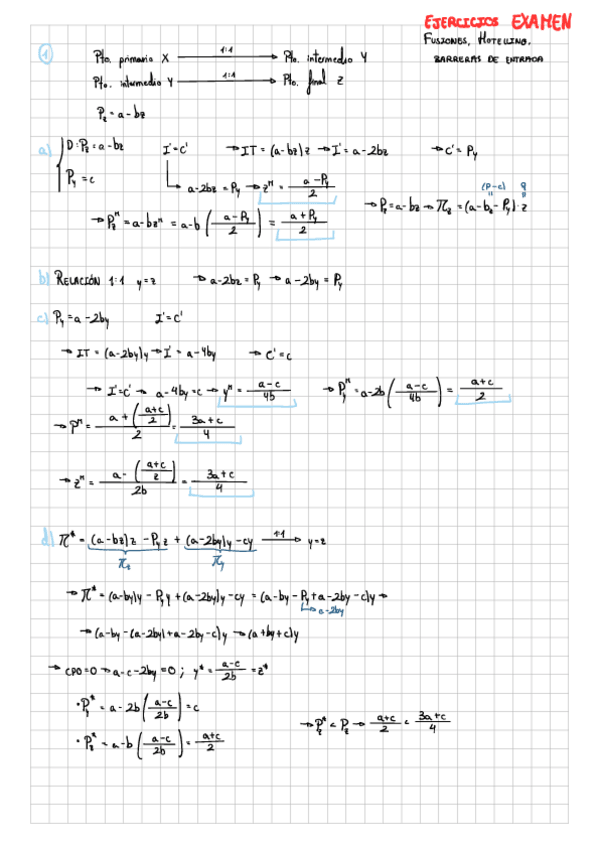 EJERCICIOS EXAMEN
FUSIONES, HOTELLING,
BARRERAS DE ENTRADA
① Pto. primario X —1:1→ Pto. intermedio Y
Pto. intermedio Y —1:1→ Pto. final Z
P_z = a - bz
a) { D: P_z = a - bz   I' = c'   → IT = (a - bz)z → I' = a - 2bz   → C' = P_y
P_y = c   ↳ a - 2bz = P_y → z^n = (a - P_y)/2
→ P_z^n = a - bz^n = a - b((a - P_y)/2) = (a + P_y)/2   → P_z = a - bz → π_z = (a - bz - P_y) · z
(P-c)   q
b) RELACIÓN 1:1 y=z   → a - 2bz = P_y → a - 2by = P_y
c) P_y = a - 2by   I' = c'
→ IT = (a - 2by)y → I' = a - 4by   → C' = c
→ I' = c' → a - 4by = c → y^n = (a - c)/4b   → P_y^n = a - 2b((a - c)/4b) = (a + c)/2
→ P^n = (a + ((a + c)/2))/2 = (3a + c)/4
→ z^n = (a - ((a + c)/2))/2b = (3a + c)/4
d) π* = (a - bz)z - P_y z + (a - 2by)y - cy —1:1→ y = z
π_z   π_y
→ π* = (a - by)y - P_y y + (a - 2by)y - cy = (a - by - P_y + a - 2by - c)y →
↳ a - 2by
→ (a - by - (a - 2by) + a - 2by - c)y → (a + by + c)y
→ CPO = 0 → a - c - 2by = 0 ; y* = (a - c)/2b = z*
· P_y* = a - 2b((a - c)/2b) = c
· P_z* = a - b((a - c)/2b) = (a + c)/2   → P_z* < P_z → (a + c)/2 < (3a + c)/4